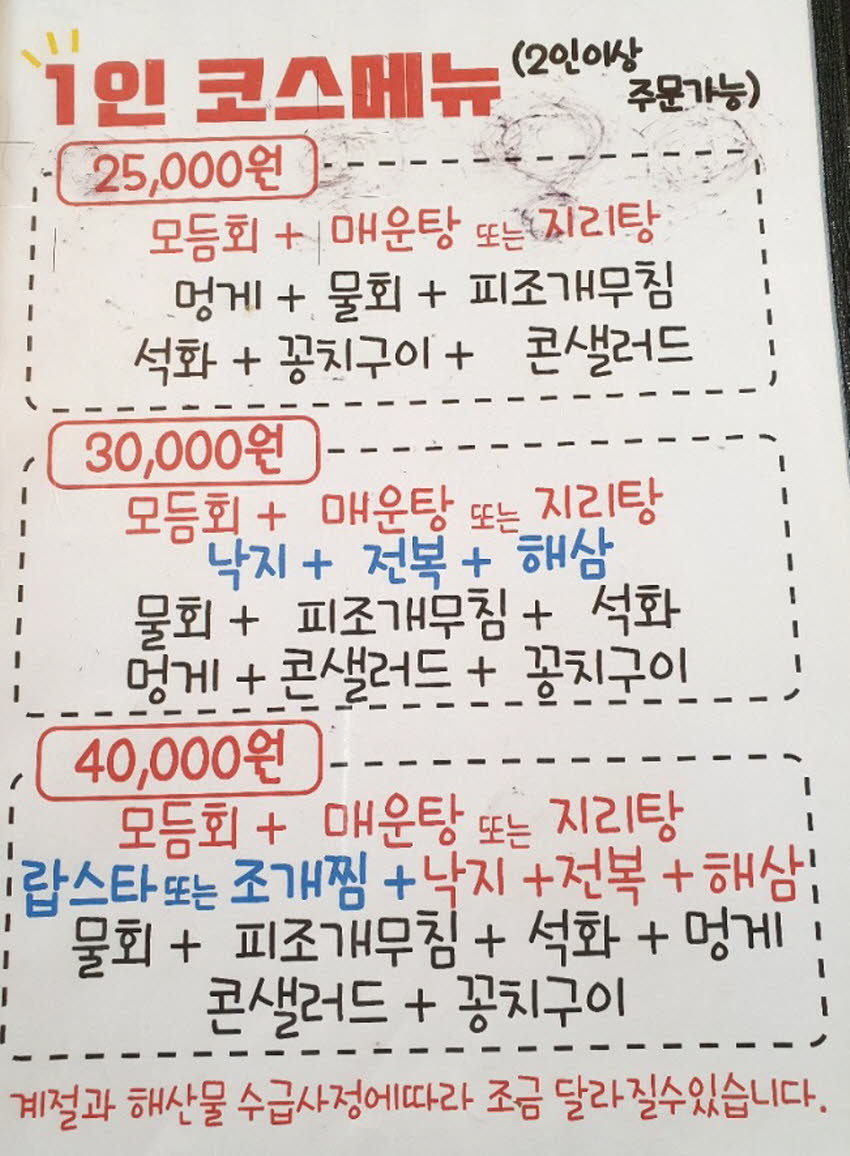 1인 코스메뉴 (2인이상
주문가능)
25,000원
모듬회 + 매운탕 또는 지리탕
멍게 + 물회 + 피조개무침
석화 + 꽁치구이 + 콘샐러드
30,000원
모듬회 + 매운탕 또는 지리탕
낙지 + 전복 + 해삼
물회 + 피조개무침 + 석화
멍게 + 콘샐러드 + 꽁치구이
40,000원
모듬회 + 매운탕 또는 지리탕
랍스타 또는 조개찜 + 낙지 + 전복 + 해삼
물회 + 피조개무침 + 석화 + 멍게
콘샐러드 + 꽁치구이
계절과 해산물 수급사정에따라 조금 달라질수있습니다.